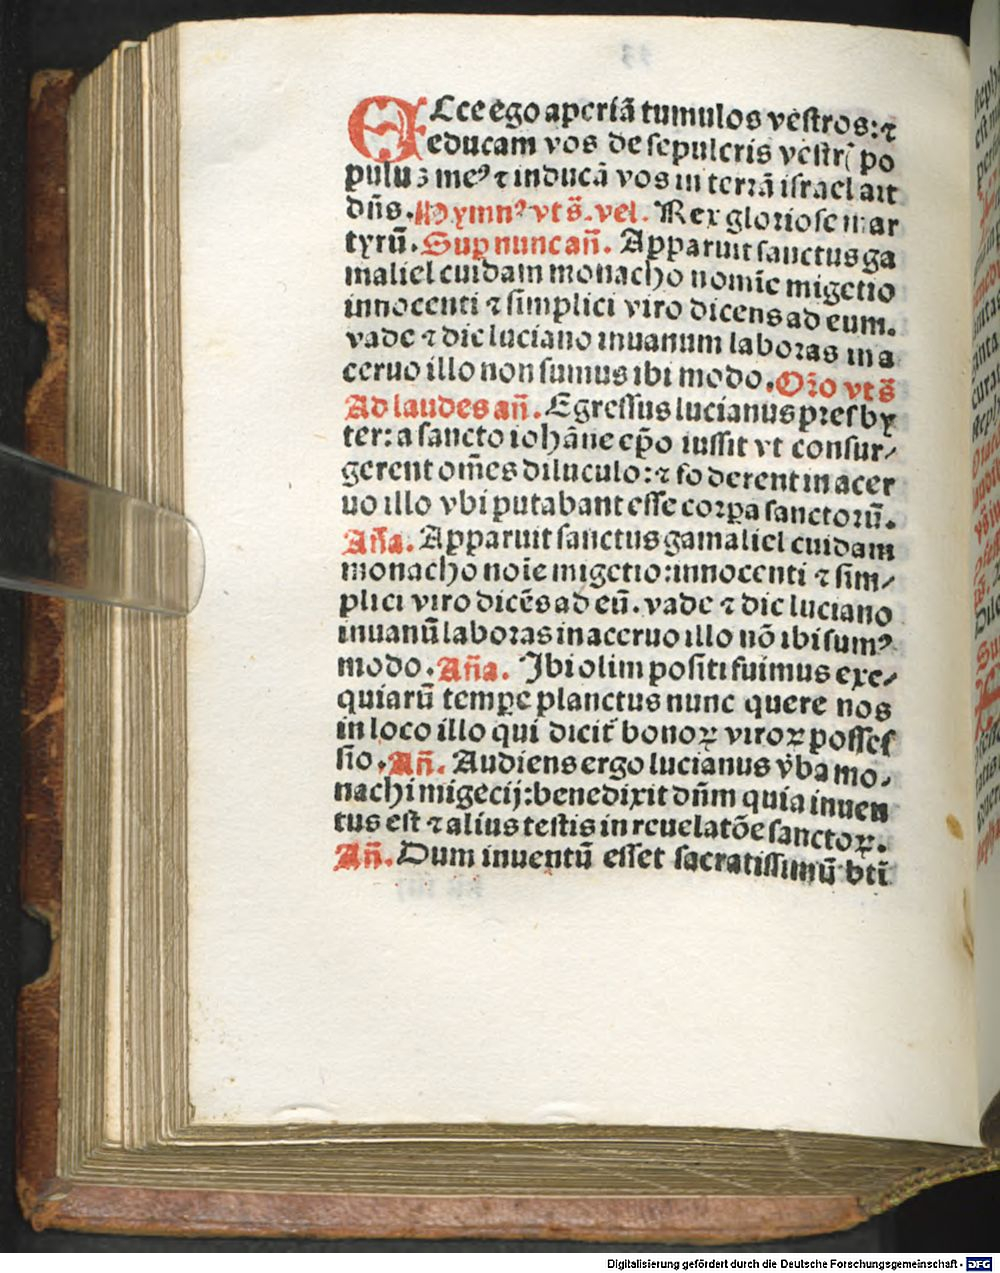 ECce ego aperiā tumulos vestros: ⁊
educam vos de sepulcris vestrꝭ po
puluꝫ meꝰ ⁊ inducā vos in terrā israel ait
dn̄s. Hymnꝰ vt s̄. vel. Rex gloriose mar
tyrū. Suꝑ nunc an̄. Apparuit sanctus ga
maliel cuidam monacho nomīe migetio
innocenti ⁊ simplici viro dicens ad eum.
vade ⁊ dic luciano inuanum laboras in a
ceruo illo non sumus ibi modo. Oꝛ̄o vt s̄
Ad laudes an̄. Egressus lucianus presby
ter: a sancto iohāne ep̄o iussit vt consur⸗
gerent om̄es diluculo: ⁊ foderent in acer
uo illo vbi putabant esse corꝑa sanctorū.
An̄a. Apparuit sanctus gamaliel cuidam
monacho noīe migetio: innocenti ⁊ sim⸗
plici viro dicēs ad eū. vade ⁊ dic luciano
inuanū laboras in aceruo illo nō ibi sumꝰ
modo. An̄a. Ibi olim positi fuimus exe⸗
quiarū temꝑe planctus nunc quere nos
in loco illo qui dicit᷑ bonoꝝ viroꝝ posses
sio. An̄. Audiens ergo lucianus v̄ba mo⸗
nachi migecij: benedixit dn̄m quia inuen
tus est ⁊ alius testis in reuelatōe sanctoꝝ.
An̄. Dum inuentū esset sacratissimū bt̄i
Digitalisierung gefördert durch die Deutsche Forschungsgemeinschaft - DFG